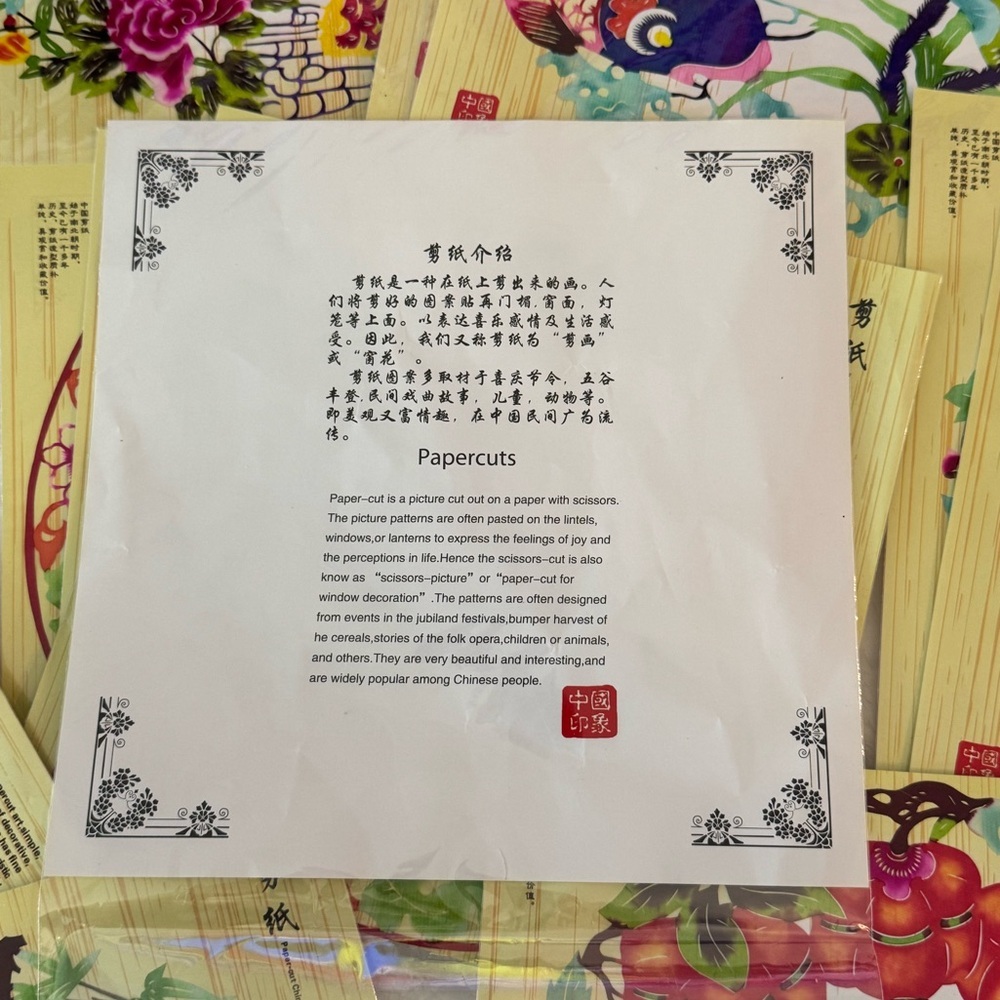 中國
印象
中国剪纸
始于南北朝时期,
至今已有一千多年
历史。剪纸造型质朴
单纯,具观赏和收藏价值。
中国剪纸
始于南北朝时期,
至今已有一千多年
历史。剪纸造型质朴
单纯,具观赏和收藏价值。
剪纸介绍
剪纸是一种在纸上剪出来的画。人
们将剪好的图案贴再门楣,窗面,灯
笼等上面。以表达喜乐感情及生活感
受。因此,我们又称剪纸为“剪画”
或“窗花”。
剪纸图案多取材于喜庆节令,五谷
丰登,民间戏曲故事,儿童,动物等。
即美观又富情趣,在中国民间广为流
传。
剪纸
Papercuts
Paper-cut is a picture cut out on a paper with scissors.
The picture patterns are often pasted on the lintels,
windows,or lanterns to express the feelings of joy and
the perceptions in life.Hence the scissors-cut is also
know as “scissors-picture” or “paper-cut for
window decoration” .The patterns are often designed
from events in the jubiland festivals,bumper harvest of
he cereals,stories of the folk opera,children or animals,
and others.They are very beautiful and interesting,and
are widely popular among Chinese people.
中國
印象
中國
印
art,simple,
decorative,
has fine
剪纸
Paper-art Chi
价值。